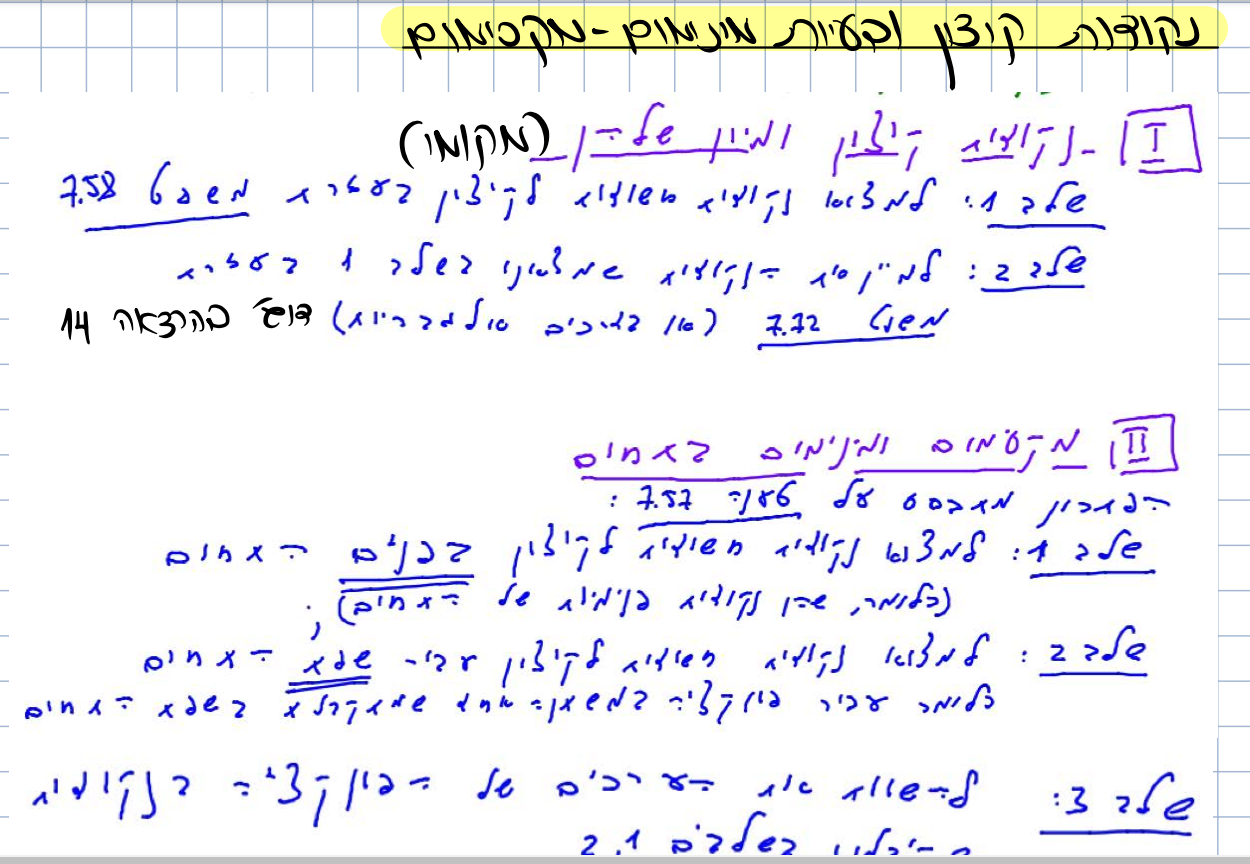 נקודות קיצון ובעיות מינימום-מקסימום
I - נקודות קיצון ומיון שלהן (מקומי)
שלב 1: למצוא נקודות חשודות לקיצון בעזרת משפט 7.58
שלב 2: למיין את הנקודות שמצאנו בשלב 1 בעזרת
משפט 7.72 (או בדרכים אלגבריות) דוג' בהרצאה 14
II מקסימום ומינימום בתחום
הפתרון מתבסס על טענה 7.57:
שלב 1: למצוא נקודות חשודות לקיצון בפנים התחום
(כלומר, שהן נקודות פנימיות של התחום);
שלב 2: למצוא נקודות חשודות לקיצון עבור שפת התחום
כלומר עבור פונקציה במשתנה אחד שמתקבלת בשפת התחום
שלב 3: להשוות את הערכים של הפונקציה בנקודות
בשלבים 2,1